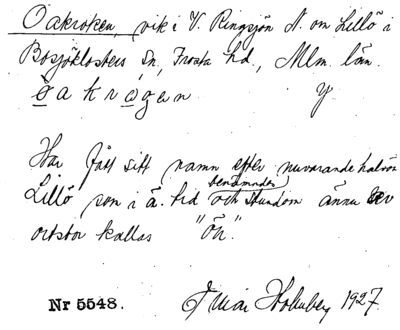 Öakroken, vik i V. Ringsjön N. om Lillö i
Bosjöklosters sn, Frosta hd., Mlm. län.
ö a k r ó g e n y
Har fått sitt namn efter nuvarande halvön
Lillö som i ä. tid benämndes och stundom ännu av
ortsbor kallas "ön".
Nr 5548. Ingvar Holmberg 1927.